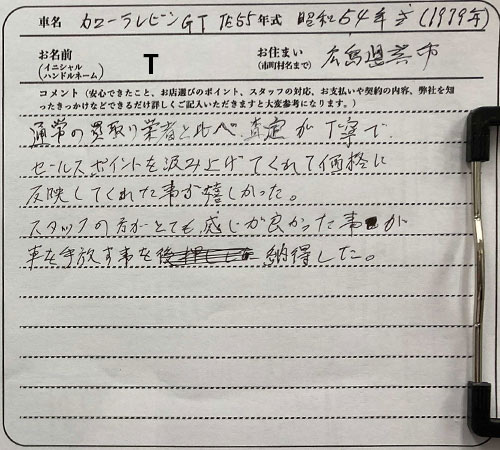 車名 カローラレビンGT TE55年式 昭和54年式(1979年)
お名前 T お住まい 広島県呉市
(イニシャル (市町村名まで)
ハンドルネーム)
コメント(安心できたこと、お店選びのポイント、スタッフの対応、お支払いや契約の内容、弊社を知
ったきっかけなどできるだけ詳しくご記入いただきますと大変参考になります。)
通常の買取り業者と比べ、査定が丁寧で
セールスポイントを汲み上げてくれて価格に
反映してくれた事が嬉しかった。
スタッフの方がとても感じが良かった事が
車を手放す事を 納得した。